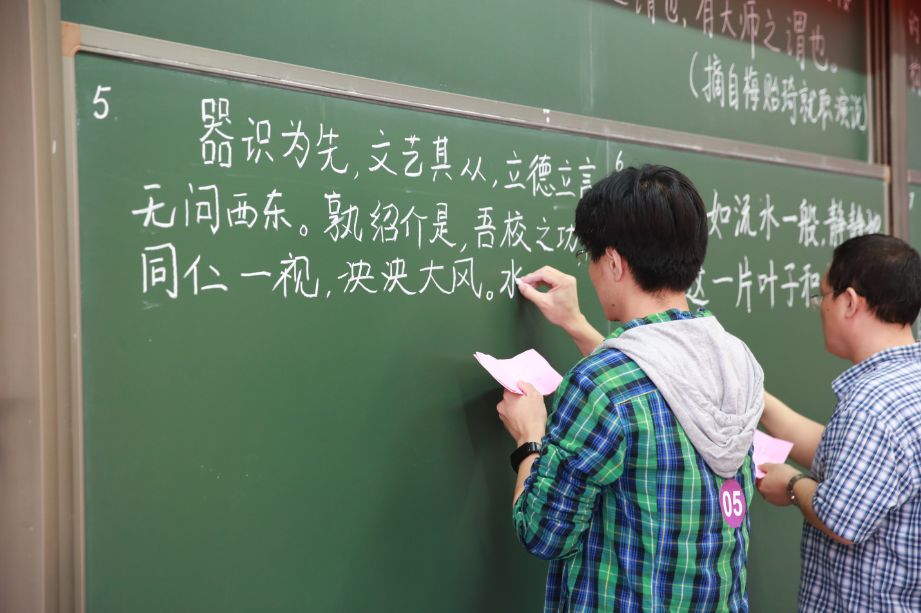 谓也,有大师之谓也。
(摘自梅贻琦就职演说)
5
器识为先,文艺其从,立德立言
无问西东。孰绍介是,吾校之功
同仁一视,泱泱大风。水
6
如流水一般,静静地
这一片叶子和
05